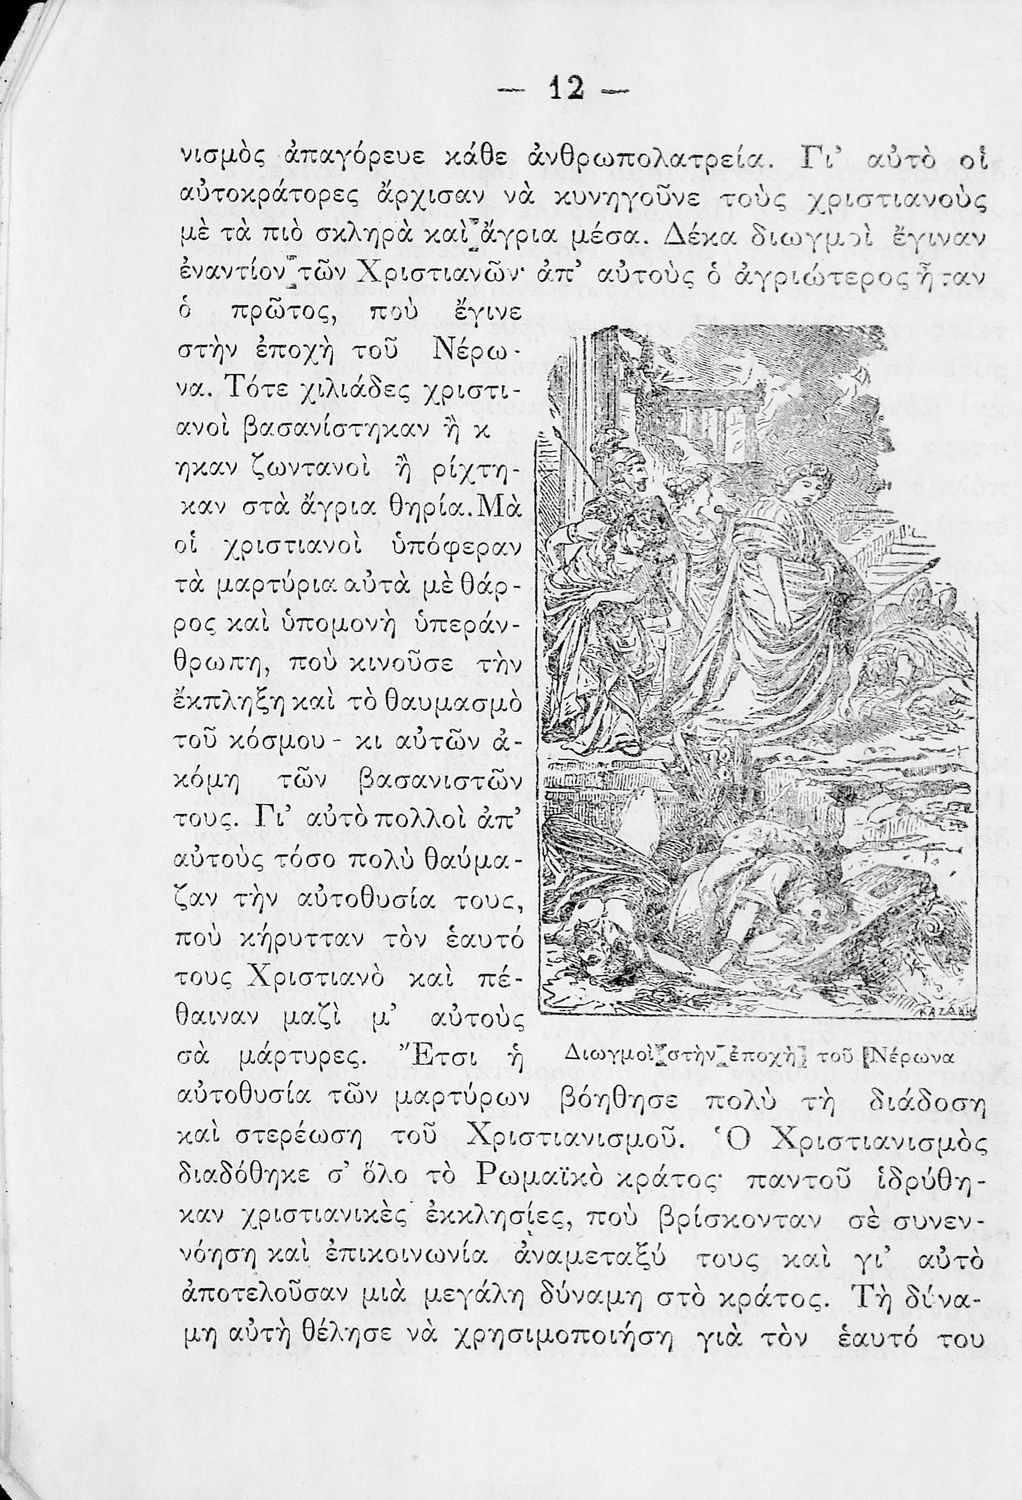 — 12 —
νισμὸς ἀπαγόρευε κάθε ἀνθρωπολατρεία. Γι’ αὐτὸ οἱ
αὐτοκράτορες ἄρχισαν νὰ κυνηγοῦνε τοὺς χριστιανοὺς
μὲ τὰ πιὸ σκληρὰ καὶ ἄγρια μέσα. Δέκα διωγμοὶ ἔγιναν
ἐναντίον τῶν Χριστιανῶν· ἀπ’ αὐτοὺς ὁ ἀγριώτερος ἦταν
ὁ πρῶτος, ποὺ ἔγινε
στὴν ἐποχὴ τοῦ Νέρω-
να. Τότε χιλιάδες χριστι-
ανοὶ βασανίστηκαν ἢ κ
ηκαν ζωντανοὶ ἢ ρίχτη-
καν στὰ ἄγρια θηρία. Μὰ
οἱ χριστιανοὶ ὑπόφεραν
τὰ μαρτύρια αὐτὰ μὲ θάρ-
ρος καὶ ὑπομονὴ ὑπεράν-
θρωπη, ποὺ κινοῦσε τὴν
ἔκπληξη καὶ τὸ θαυμασμὸ
τοῦ κόσμου - κι αὐτῶν ἀ-
κόμη τῶν βασανιστῶν
τους. Γι’ αὐτὸ πολλοὶ ἀπ’
αὐτοὺς τόσο πολὺ θαύμα-
ζαν τὴν αὐτοθυσία τους,
ποὺ κήρυτταν τὸν ἑαυτό
τους Χριστιανὸ καὶ πέ-
θαιναν μαζὶ μ’ αὐτοὺς
σὰ μάρτυρες. Ἔτσι ἡ
ΚΑΖΑΚΗ
Διωγμοὶ στὴν ἐποχὴ τοῦ Νέρωνα
αὐτοθυσία τῶν μαρτύρων βόηθησε πολὺ τὴ διάδοση
καὶ στερέωση τοῦ Χριστιανισμοῦ. Ὁ Χριστιανισμὸς
διαδόθηκε σ’ ὅλο τὸ Ρωμαϊκὸ κράτος· παντοῦ ἱδρύθη-
καν χριστιανικὲς ἐκκλησίες, ποὺ βρίσκονταν σὲ συνεν-
νόηση καὶ ἐπικοινωνία ἀναμεταξύ τους καὶ γι’ αὐτὸ
ἀποτελοῦσαν μιὰ μεγάλη δύναμη στὸ κράτος. Τὴ δύνα-
μη αὐτὴ θέλησε νὰ χρησιμοποιήση γιὰ τὸν ἑαυτό του